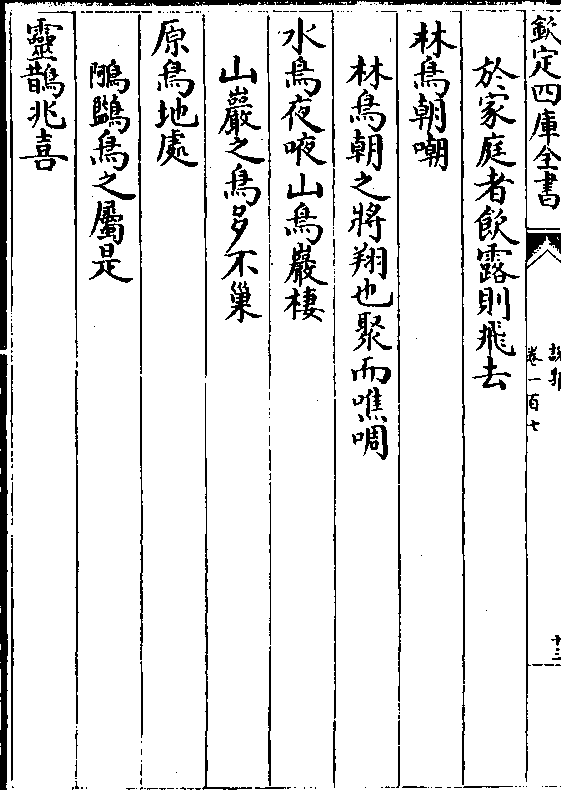 欽定四庫全書
說郛
卷一百七
十三
於家庭者飲露則飛去
林鳥朝嘲
林鳥朝之將翔也聚而噍啁
水鳥夜㖡山鳥巖棲
山巖之鳥多不巢
原鳥地處
鵬鷃鳥之屬是
靈鵲兆喜